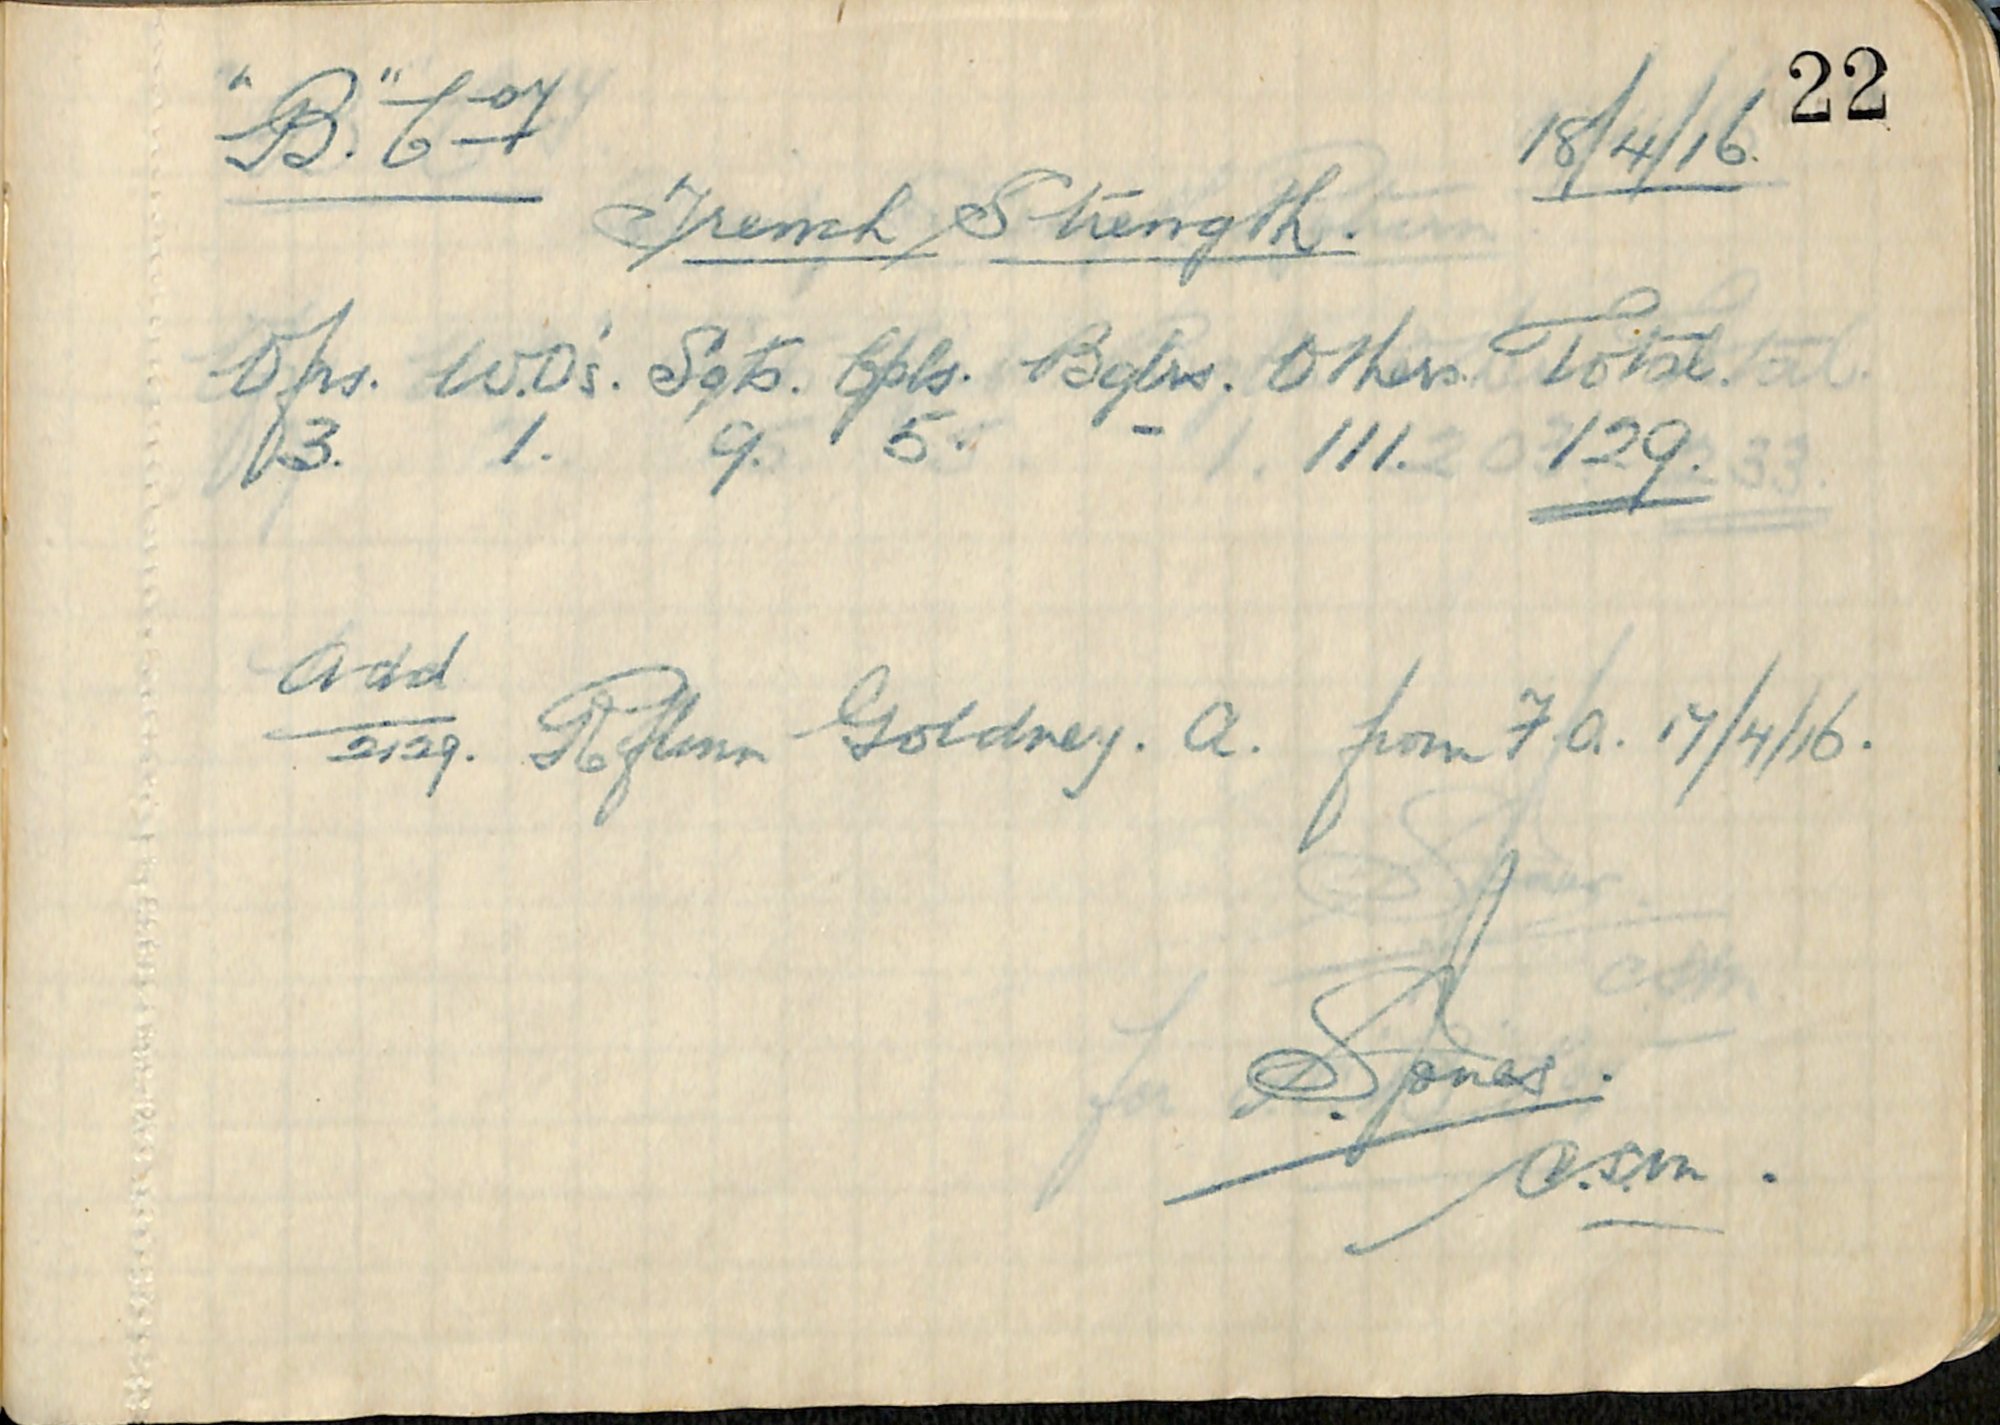 22
"B." Coy
18/4/16.
Trench Strength.
Ofrs. W.O's. Sgts. Cpls. Bglrs. Others. Total.
3. 1. 9. 5. - 111. 129.
Add
2129. Rflmn Goldney. A. from F.A. 17/4/16.
S. Jones.
C.S.M.